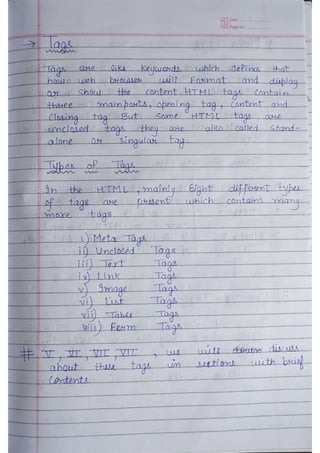 Date
Page No.
→ Tags
Tags are like keywords which defines that
how web browser will Format and display
or show the content. HTML tags contain
three main parts, opening tag, content and
closing tag. But some HTML tags are
unclosed tags they are also called Stand-
alone or singular tag.
Types of Tags
In the HTML, mainly Eight different types
of tags are present which contains many
more tags.
i) Meta Tags
ii) Unclosed Tags
iii) Text Tags
iv) Link Tags
v) Image Tags
vi) List Tags
vii) Table Tags
viii) Form Tags
# V, VI, VII, VII, we will discuss
about these tags in sections with brief
Contents.